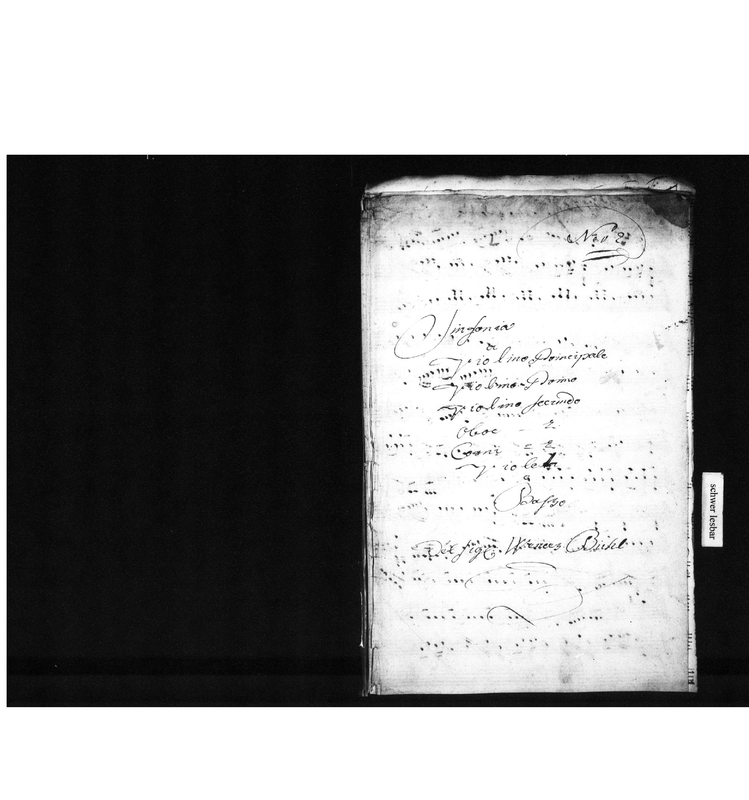 Sinfonia
a
Violino Principale
Violino Primo
Violino Secundo
Oboe 2
Corni 2
Violetta
e
Basso
Del Sigr
schwer lesbar